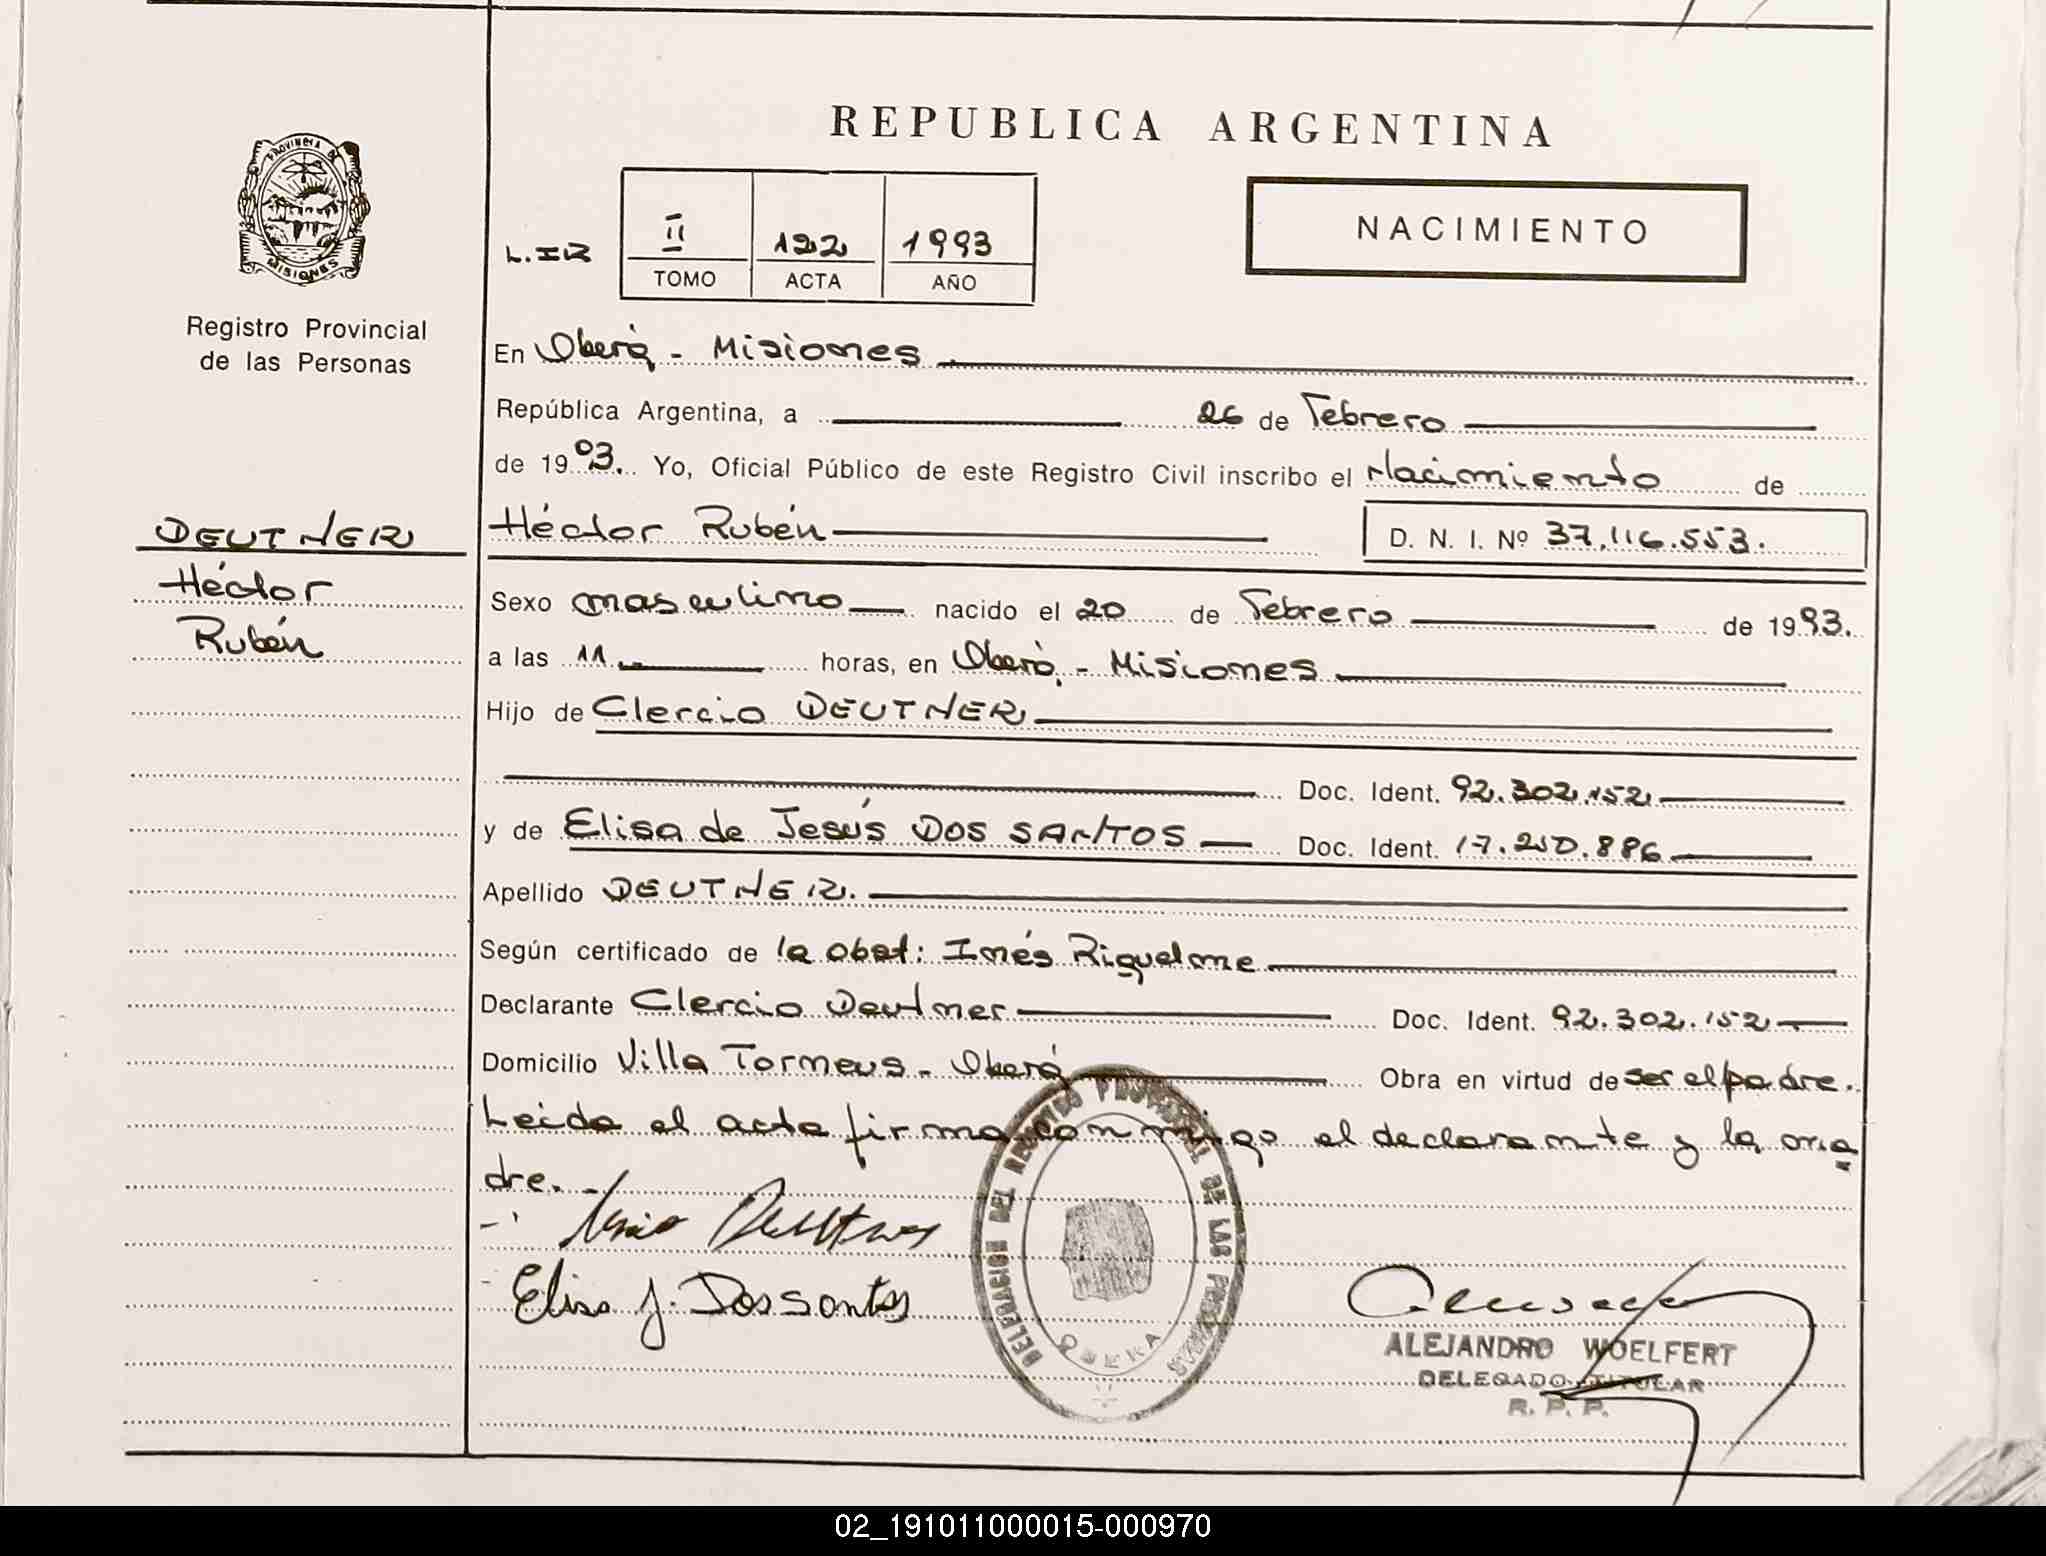 REPUBLICA ARGENTINA
PROVINCIA DE
MISIONES
Registro Provincial
de las Personas
II 122 1993
TOMO ACTA AÑO
NACIMIENTO
En Oberá - Misiones
República Argentina, a 26 de Febrero
de 1993. Yo, Oficial Público de este Registro Civil inscribo el Nacimiento de
DEUTNER
Héctor
Rubén
Héctor Rubén D. N. I. Nº 37.116.553.
Sexo masculino nacido el 20 de Febrero de 1993.
a las 11 horas, en Oberá - Misiones
Hijo de Clercio DEUTNER
Doc. Ident. 92.302.152
y de Elisa de Jesús DOS SANTOS Doc. Ident. 17.210.886
Apellido DEUTNER.
Según certificado de la obst: Inés Riquelme
Declarante Clercio Deutner Doc. Ident. 92.302.152
Domicilio Villa Torneus - Oberá Obra en virtud de ser el padre.
Leida el acta firma conmigo el declarante y la ma
dre.
Deutner
Elisa J. Dos santos
DELEGACION DEL REGISTRO PROVINCIAL DE LAS PERSONAS
OBERA
ALEJANDRO WOELFERT
DELEGADO TITULAR
R. P. P.
02_191011000015-000970